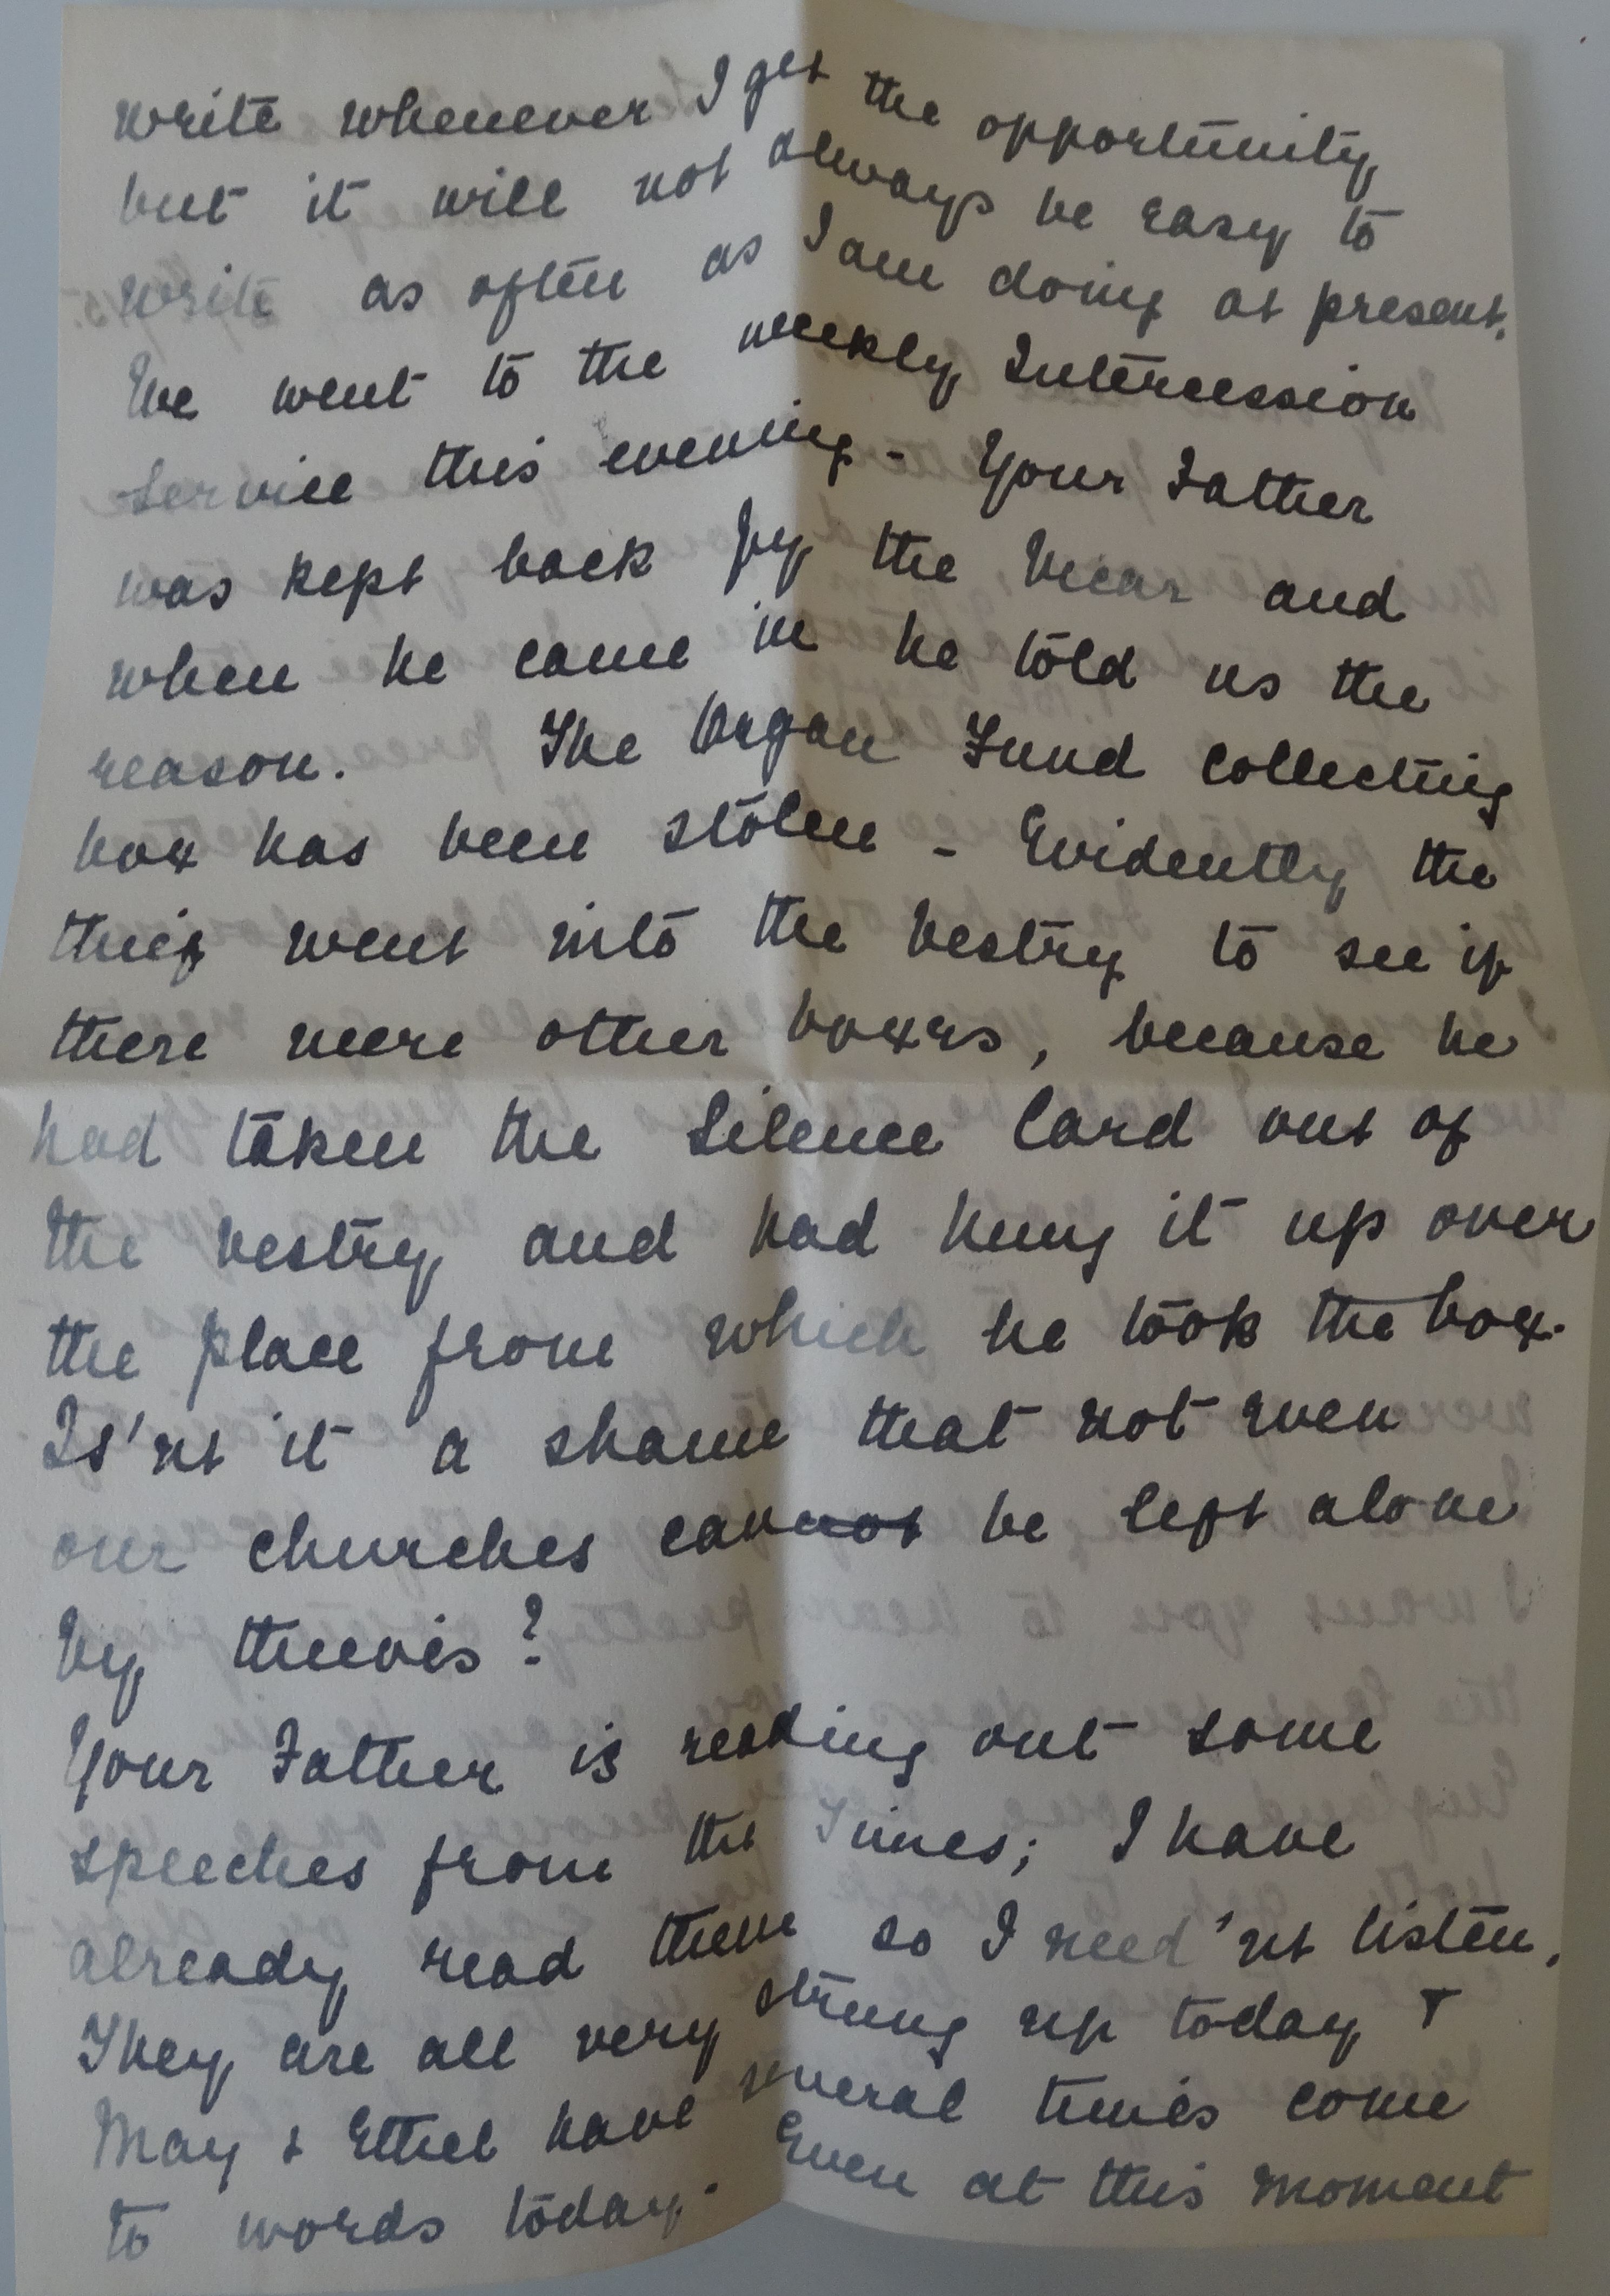 write whenever I get the opportunity
but it will not always be easy to
write as often as I am doing at present.
We went to the weekly Intercession
Service this evening - Your Father
was kept back by the Vicar and
when he came in he told us the
reason. The Organ Fund Collecting
box has been stolen - Evidently the
thief went into the vestry to see if
there were other boxes, because he
had taken the Silence Card out of
the vestry and had hung it up over
the place from which he took the box.
Is'nt it a shame that not even
our churches cannot be left alone
by thieves?
Your Father is reading out some
speeches from the Times; I have
already read them so I need'nt listen.
They are all very strung up today &
May & Ethel have several times come
to words today. Even at this moment